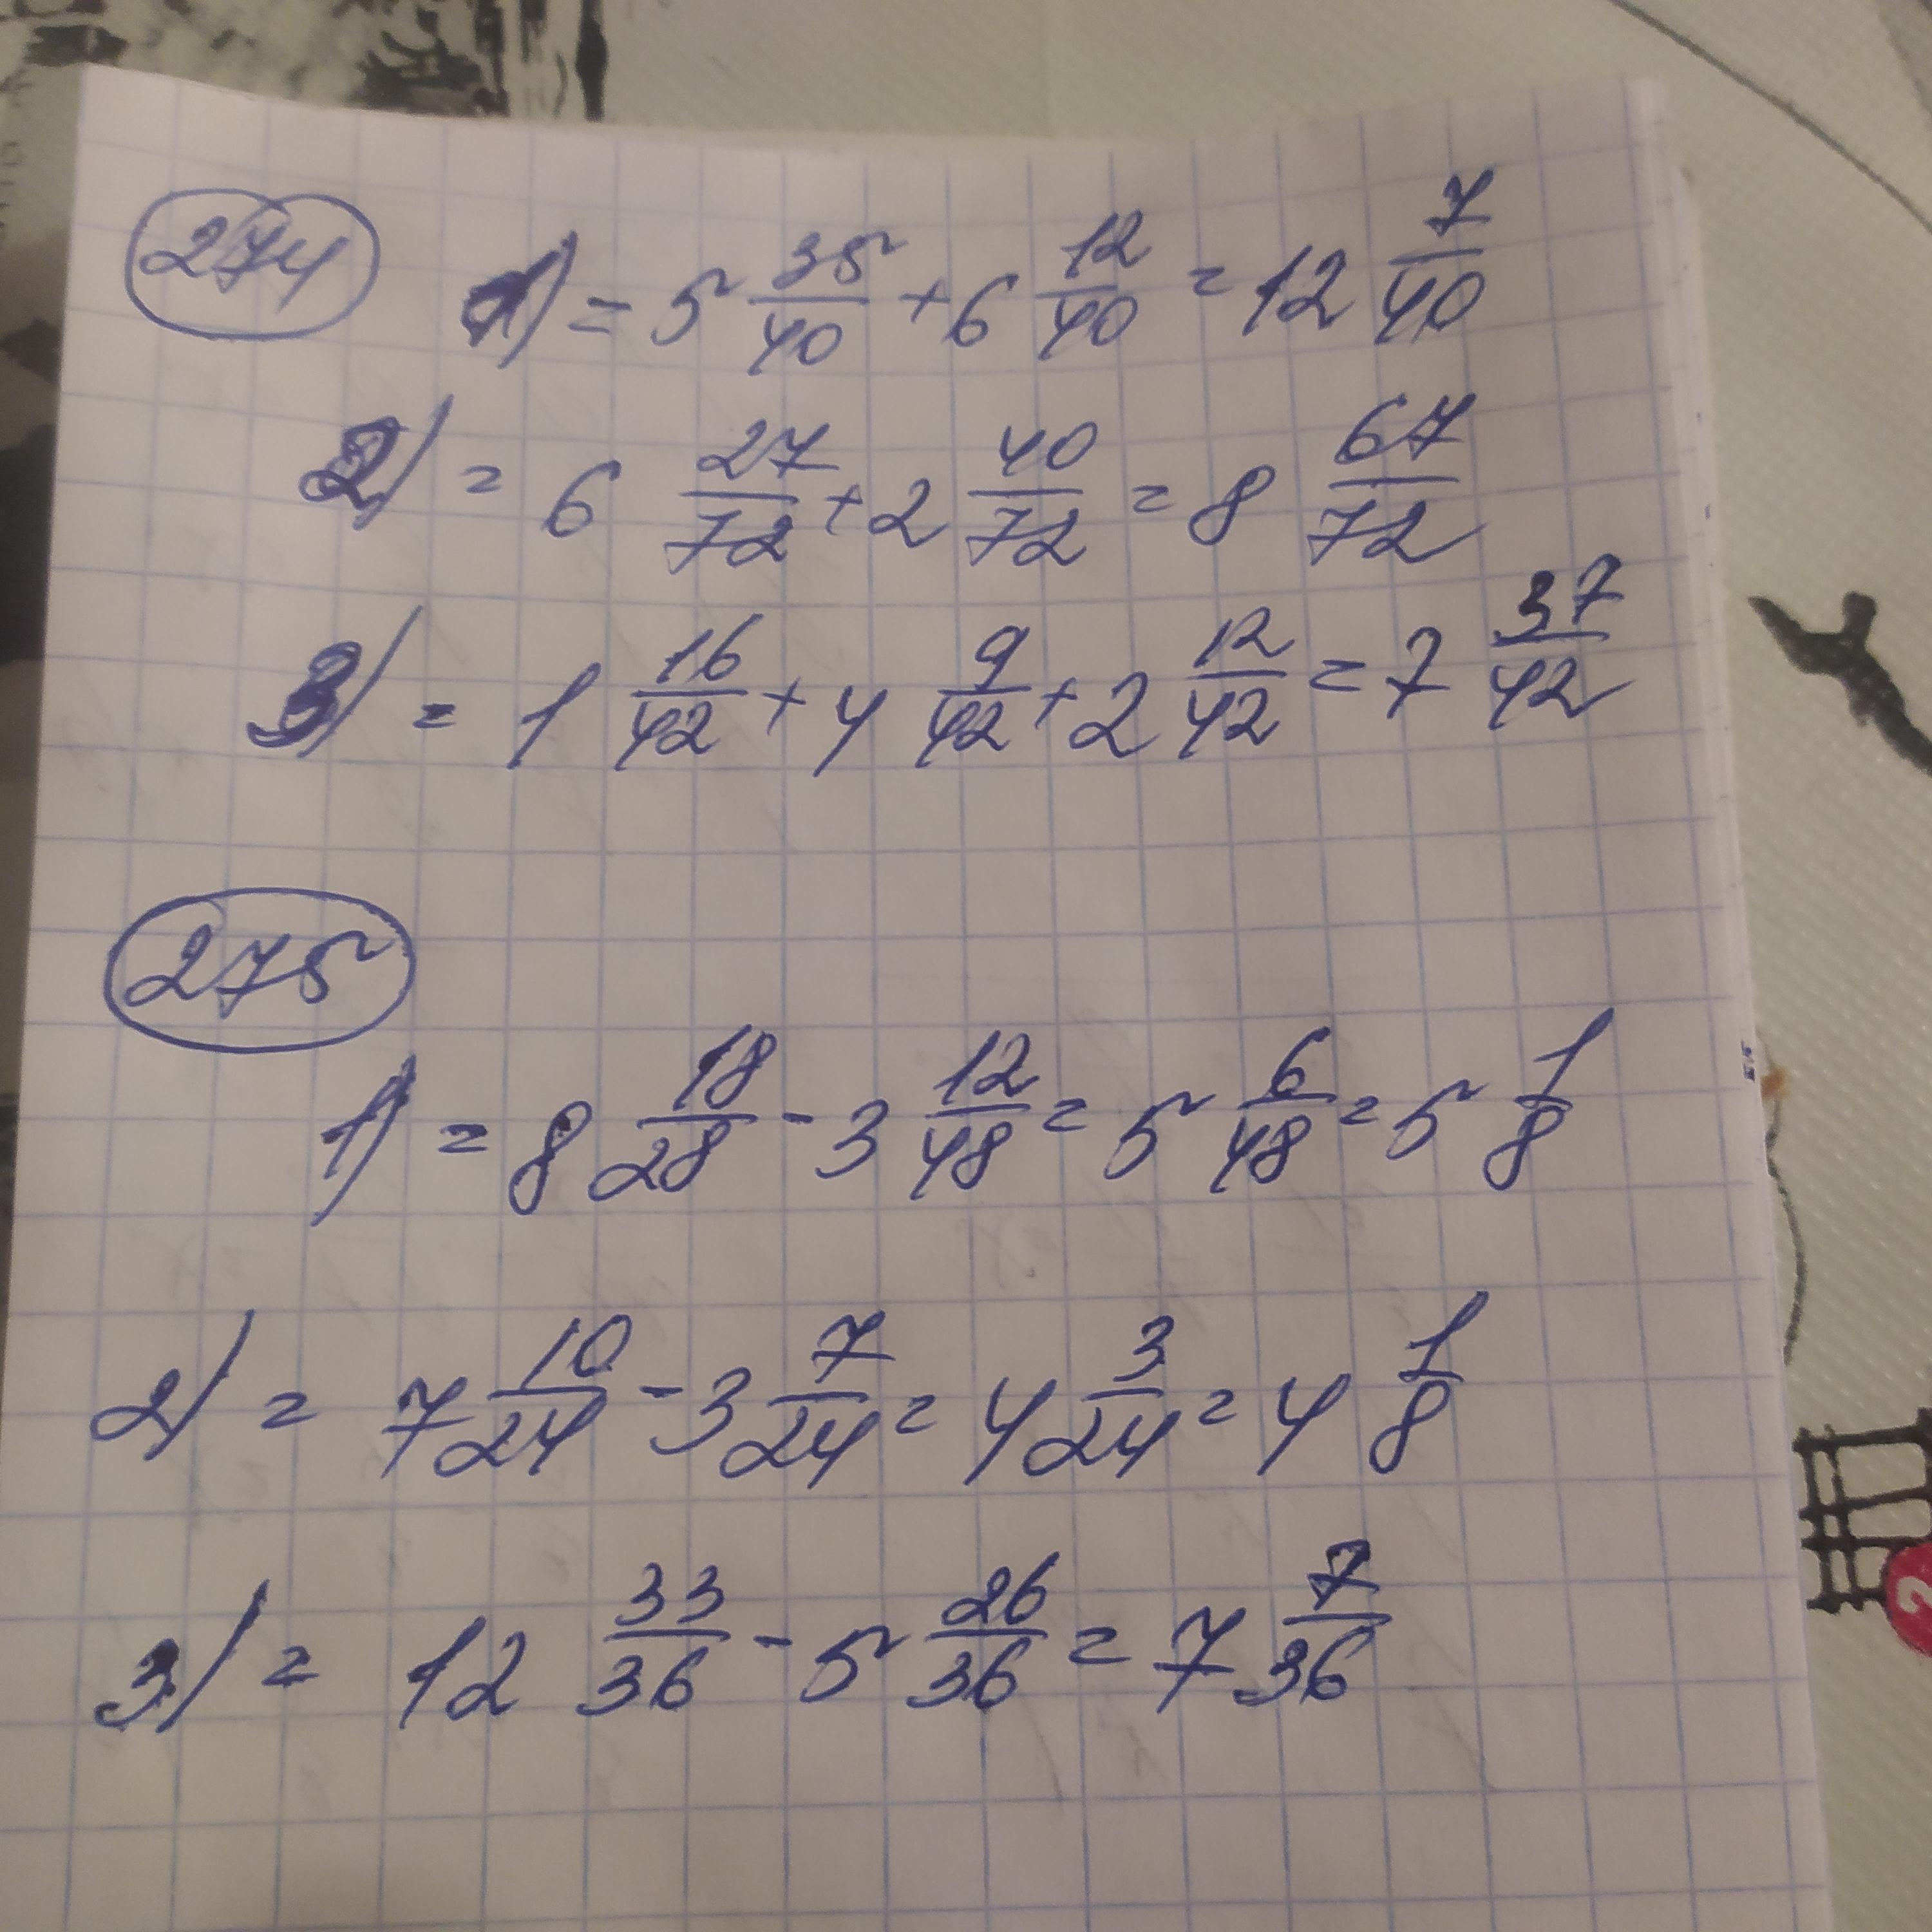 274 1) = 5 35/40 + 6 12/40 = 12 7/40
2) = 6 27/72 + 2 40/72 = 8 67/72
3) = 1 16/42 + 4 9/42 + 2 12/42 = 7 37/42
275
1) = 8 18/28 - 3 12/48 = 5 6/48 = 5 1/8
2) = 7 10/24 - 3 7/24 = 4 3/24 = 4 1/8
3) = 12 33/36 - 5 26/36 = 7 7/36
2